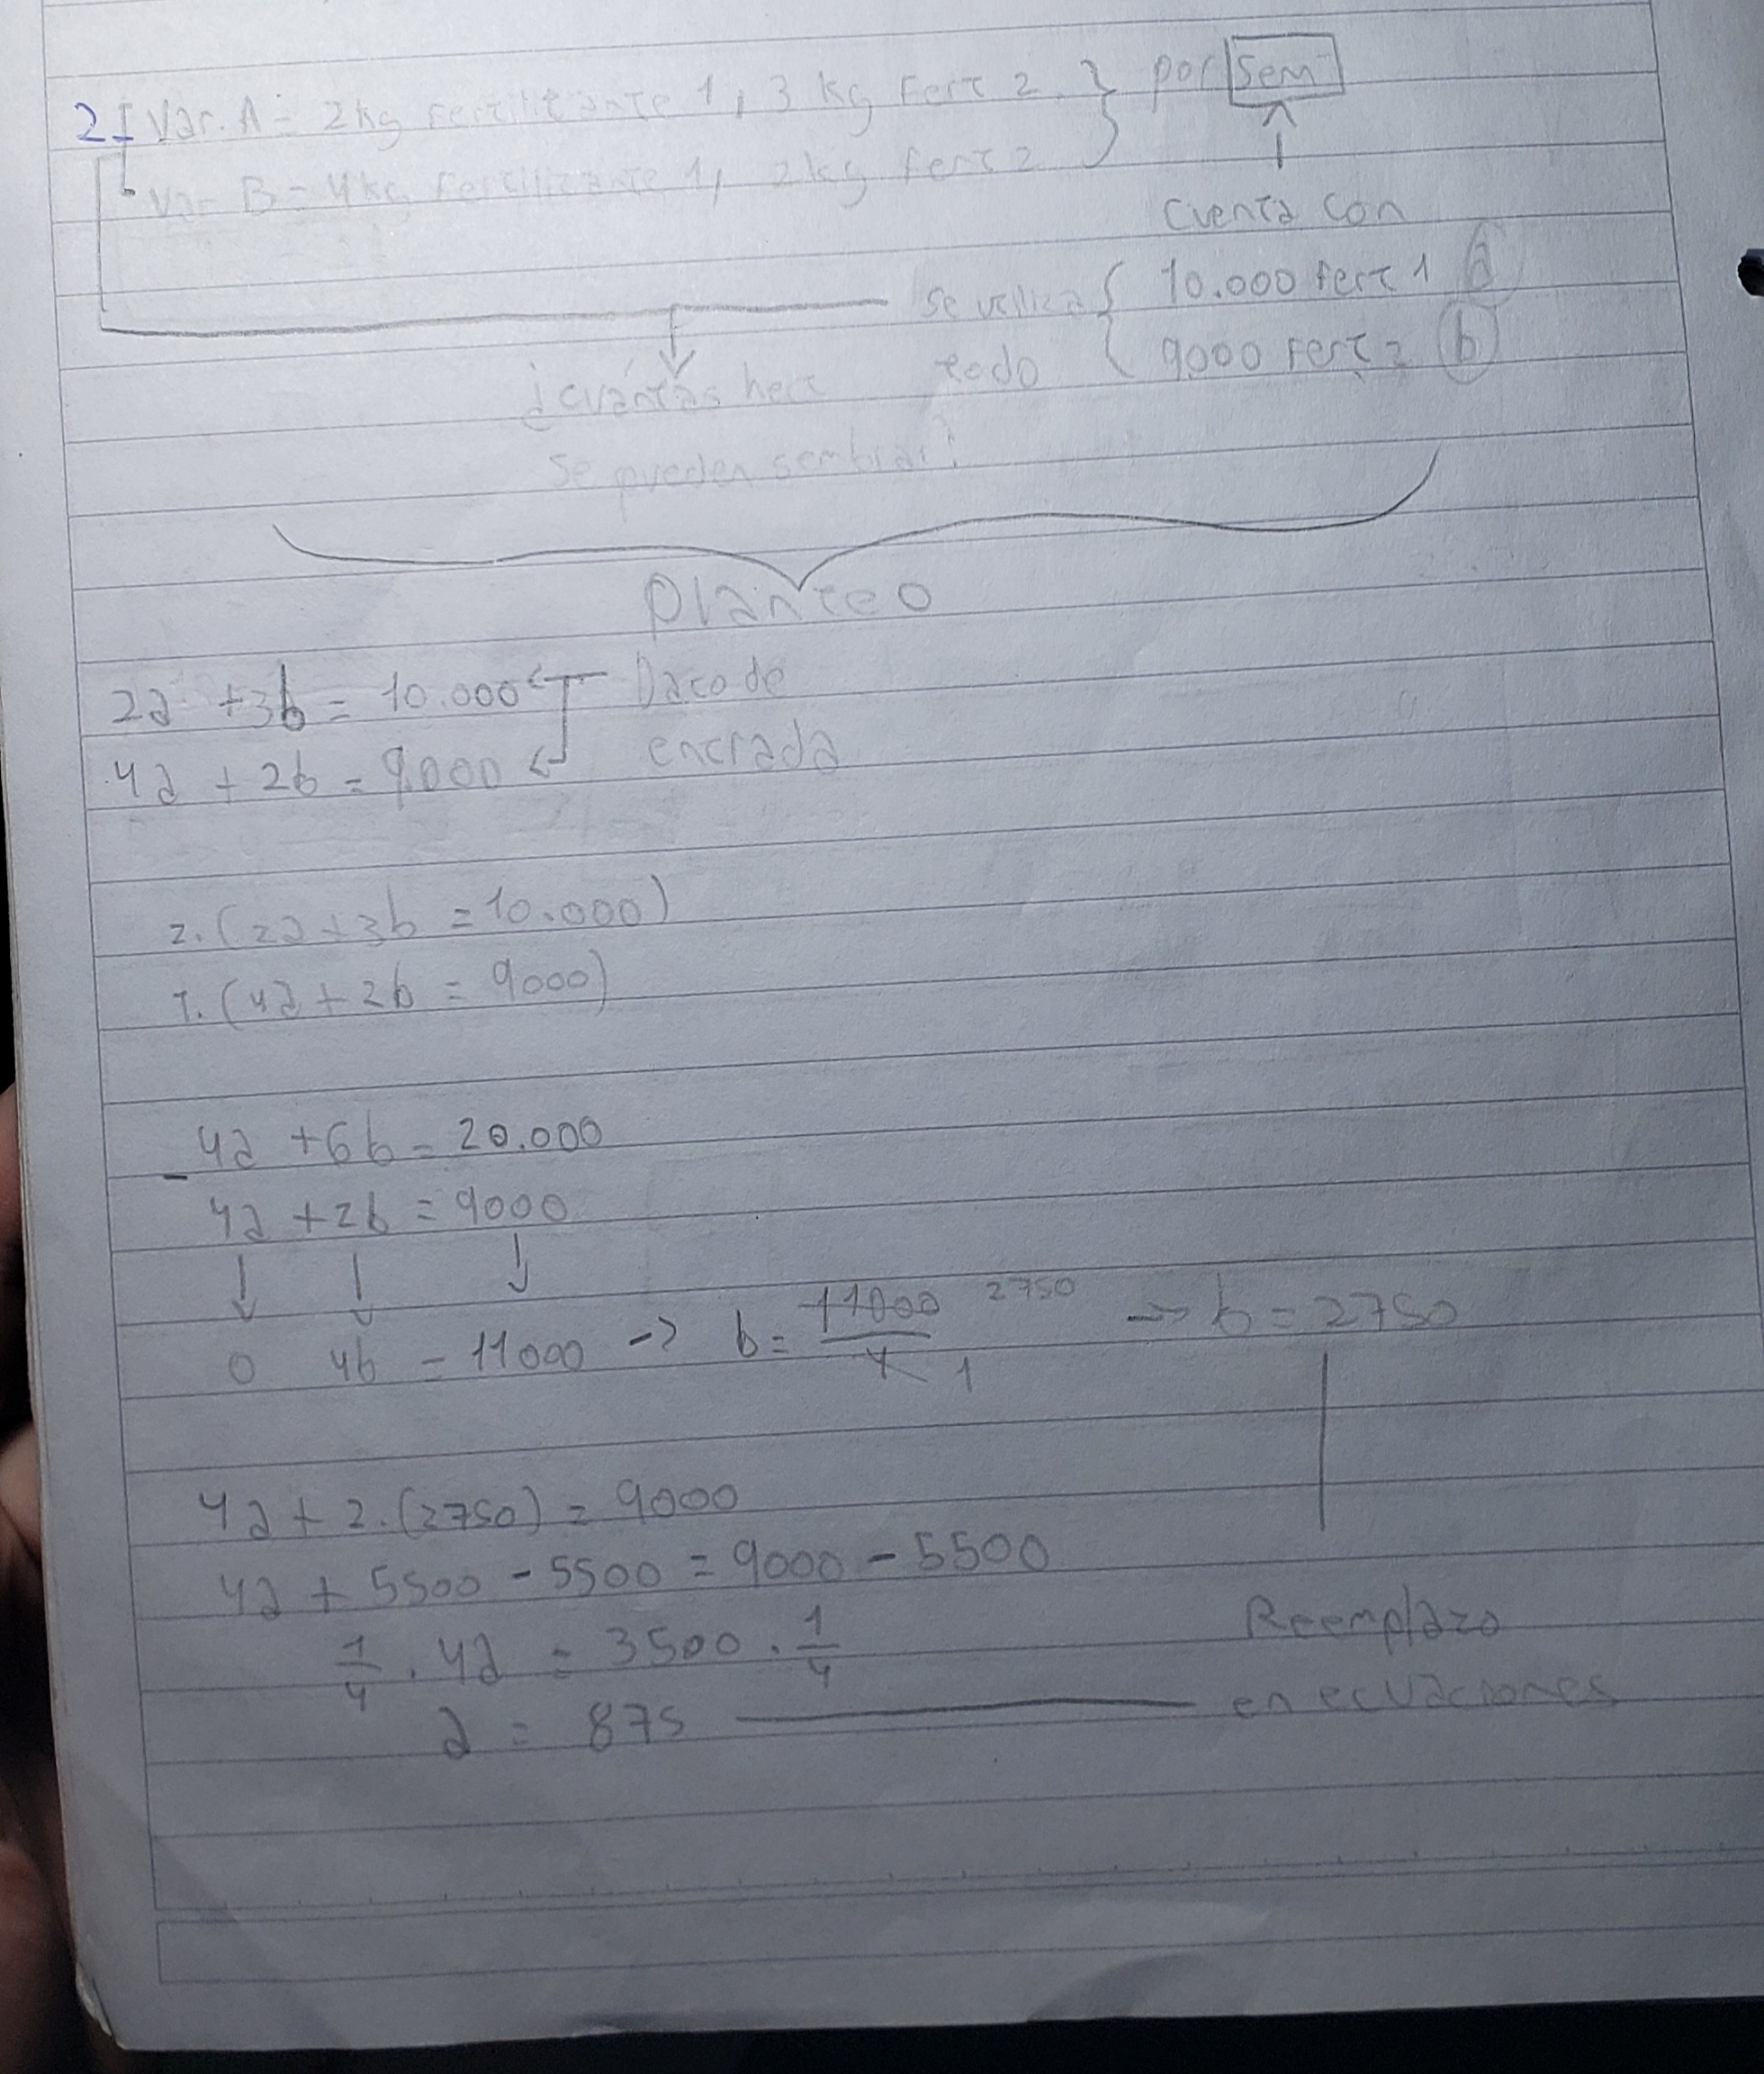 2- Var. A = 2kg fertilizante 1, 3 kg Fert 2 } por sem
Var B = 4kg Fertilizante 1, 2kg fert 2
Cuenta con
se utiliza { 10.000 fert 1 a
todo 9000 Fert 2 b
¿cuántas hect
se pueden sembrar?
Planteo
2a + 3b = 10.000 Dato de
4a + 2b = 9.000 entrada
2. (2a + 3b = 10.000)
1. (4a + 2b = 9000)
4a + 6b = 20.000
-
4a + 2b = 9000
0 4b = 11000 -> b = 11000/4 2750 1 -> b = 2750
4a + 2.(2750) = 9000
4a + 5500 - 5500 = 9000 - 5500
1/4 . 4a = 3500 . 1/4
Reemplazo
a = 875 en ecuaciones